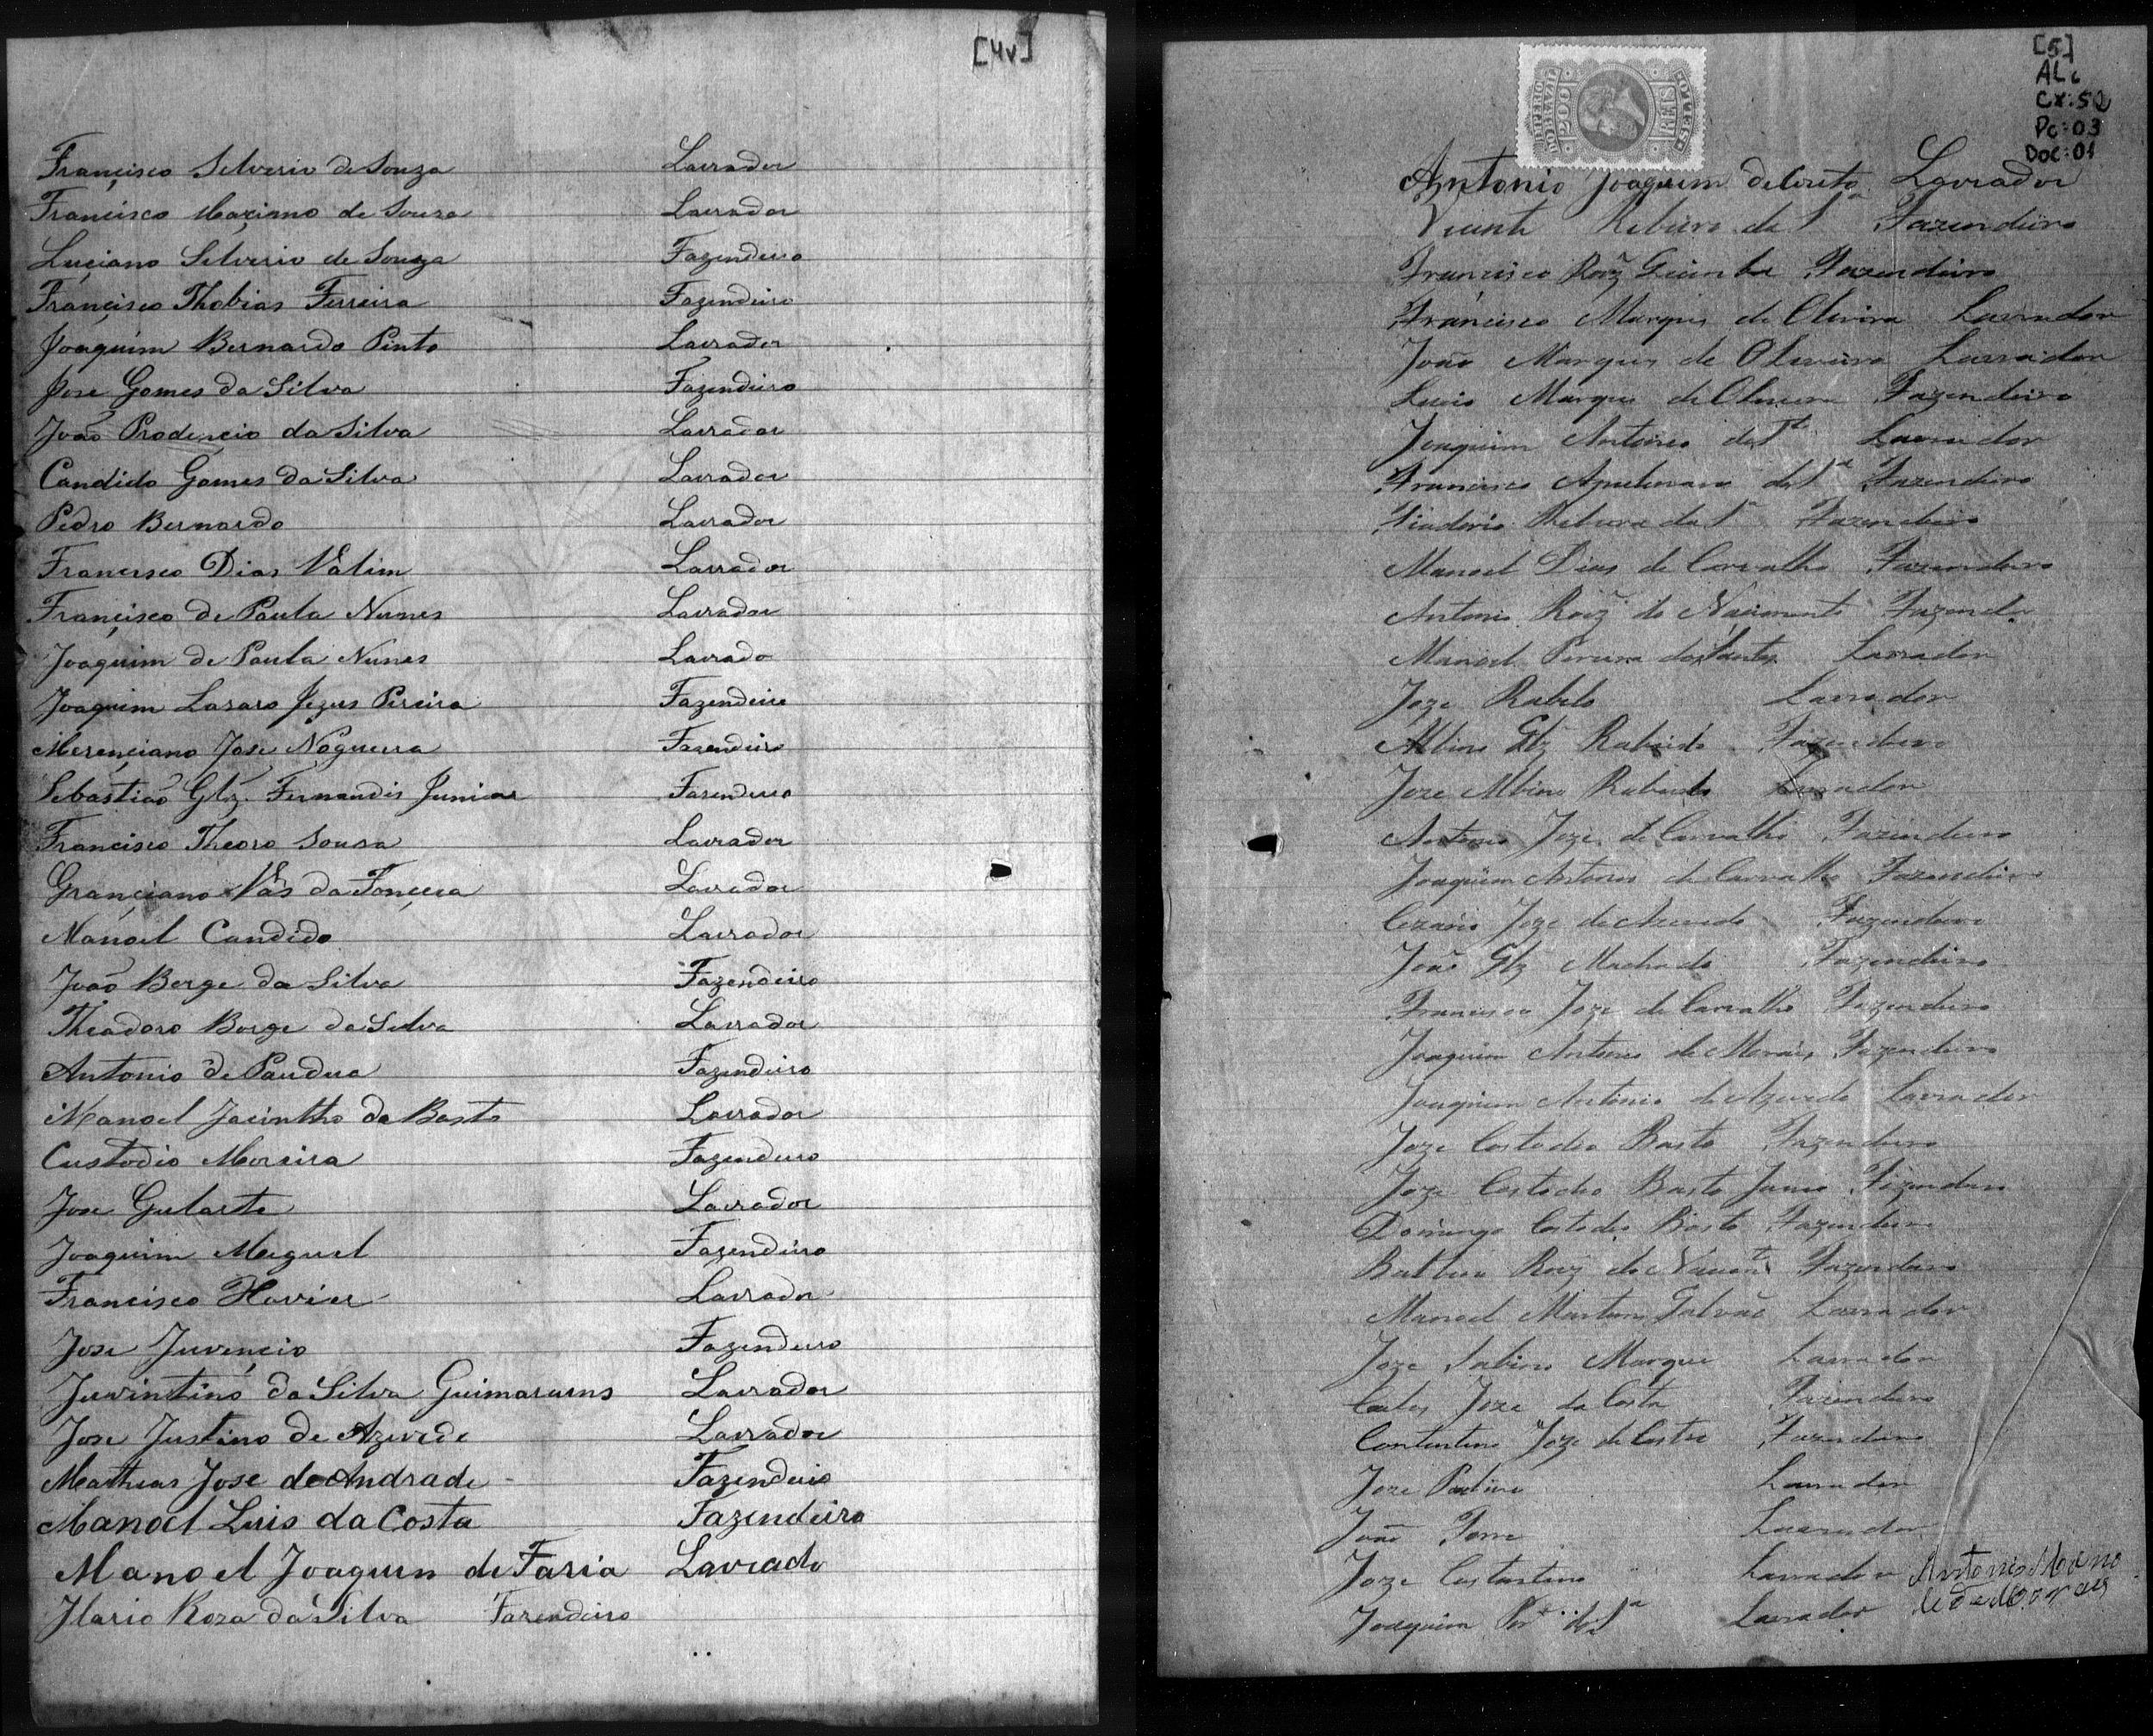 [4v]
Francisco Silverio de Souza Lavrador
Francisco Maximo de Souza Lavrador
Luciano Silverio de Souza Fazendeiro
Francisco Thobias Ferreira Fazendeiro
Joaquim Bernardo Pinto Lavrador
Jose Gomes da Silva Fazendeiro
João Prodencio da Silva Lavrador
Candido Gomes da Silva Lavrador
Pedro Bernardo Lavrador
Francisco Dias Valim Lavrador
Francisco de Paula Nunes Lavrador
Joaquim de Paula Nunes Lavrado
Joaquim Lazaro Jezus Pereira Fazendeiro
Merenciano Jose Nogueira Fazendeiro
Sebastião Glz. Fernandis Junior Fazendeiro
Francisco Theoro Sousa Lavrador
Granciano Vas da Fonceca Lavrador
Manoel Candido Lavrador
João Borge da Silva Fazendeiro
Theadoro Borge da Silva Lavrador
Antonio de Paudua Fazendeiro
Manoel Jacintho da Basto Lavrador
Custodio Moreira Fazendeiro
Jose Gularte Lavrador
Joaquim Miguel Fazendeiro
Francisco Havier Lavrador
Jose Juvencio Fazendeiro
Juvintino da Silva Guimaraens Lavrador
Jose Justino de Azevedo Lavrador
Mathias Jose de Andrade Fazendeiro
Manoel Luis da Costa Fazendeiro
Manoel Joaquim de Faria Lavrado
Ilario Roza da Silva Fazendeiro
[5]
AL.
CX: 52
Pc: 03
Doc: 01
IMPERIO DO BRAZIL 200 REIS SELLO
Antonio Joaquim de Lavrador
Ribeiro da Sª Fazendeiro
Francisco Roiz Fazendeiro
Francisco Marques de Olivira Lavrador
João Marques de Oliveira Lavrador
Lucio Marques de Oliveira Fazendeiro
Joaquim Antonio da Sª Lavrador
Francisco da Sª Fazendeiro
Ribeiro da Sª Fazendeiro
Manoel Dias de Carvalho Fazendeiro
Antonio Roiz do Nacimento Fazender
Manoel Pereira dos Santos Lavrador
Joze Rabelo Lavrador
Albino Glz Fazendeiro
Joze Albino Lavrador
Antonio Joze de Carvalho Fazendeiro
Joaquim Antonio de Carvalho Fazendeiro
Cezario Joze de Azevedo Fazendeiro
João Glz Machado Fazendeiro
Francisco Joze de Carvalho Fazendeiro
Joaquim Antonio de Morais Fazendeiro
Joaquim Antonio de Azevedo Lavrador
Joze Costodio Basto Fazendeiro
Joze Costodio Basto Fazendeiro
Domingo Costodio Basto Fazendeiro
Roiz do Fazendeiro
Manoel Martins Galvão Lavrador
Joze Sabino Marque Lavrador
Carlos Joze da Costa Fazendeiro
Joze da Costa Fazendeiro
Joze Lavrador
João Lavrador
Joze Costantino Lavrador Antonio
Joaquim da Sª Lavrador de Moraes